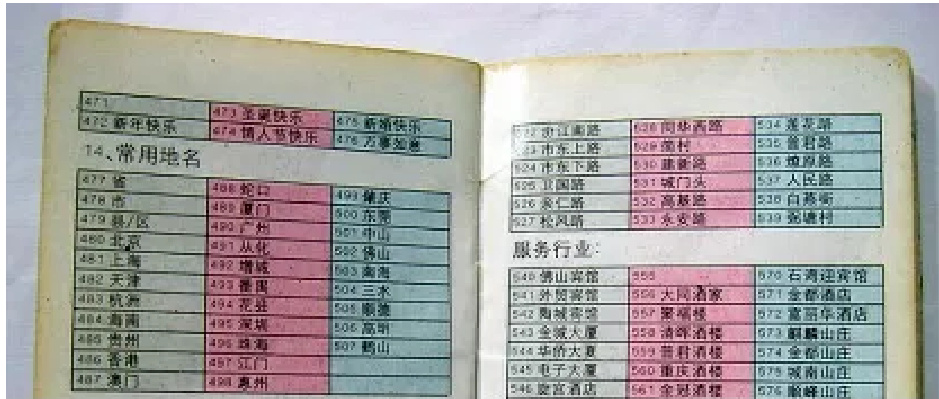 471 473 圣诞快乐 475 新婚快乐
472 新年快乐 474 情人节快乐 476 万事如意
14、常用地名
477 省 488 蛇口 499 肇庆
478 市 489 厦门 500 东莞
479 县/区 490 广州 501 中山
480 北京 491 从化 502 佛山
481 上海 492 增城 503 南海
482 天津 493 番禺 504 三水
483 杭洲 494 花县 505 顺德
484 海南 495 深圳 506 高明
485 贵州 496 珠海 507 鹤山
486 香港 497 江门
487 澳门 498 惠州
汾江南路 528 同华西路 534 莲花路
523 市东上路 529 莲村 535 普君路
524 市东下路 530 建新路 536 燎原路
525 卫国路 531 城门头 537 人民路
526 亲仁路 532 高基路 538 白燕街
527 松风路 533 永安路 539 弼塘村
服务行业:
540 佛山宾馆 555 570 石湾迎宾馆
541 外贸宾馆 556 大同酒家 571 金都酒店
542 陶城宾馆 557 聚福楼 572 富丽华酒店
543 金城大厦 558 清晖酒楼 573 麒麟山庄
544 华侨大夏 559 普君酒楼 574 金都山庄
545 电子大厦 560 重庆酒楼 575 城南山庄
546 旋宫酒店 561 金冠酒楼 576 翰峰山庄